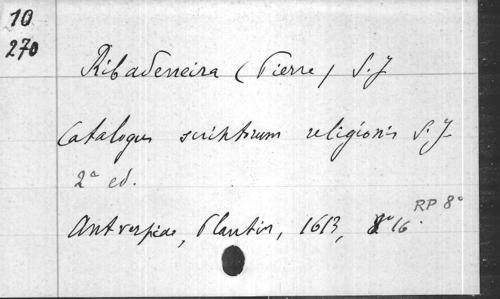 10
270
Ribadeneira (Pierre) S.J
Catalogus scriptorum religionis S.J
2ª ed.
Antverpiae, Plantin, 1613, 16º.
RP 8º